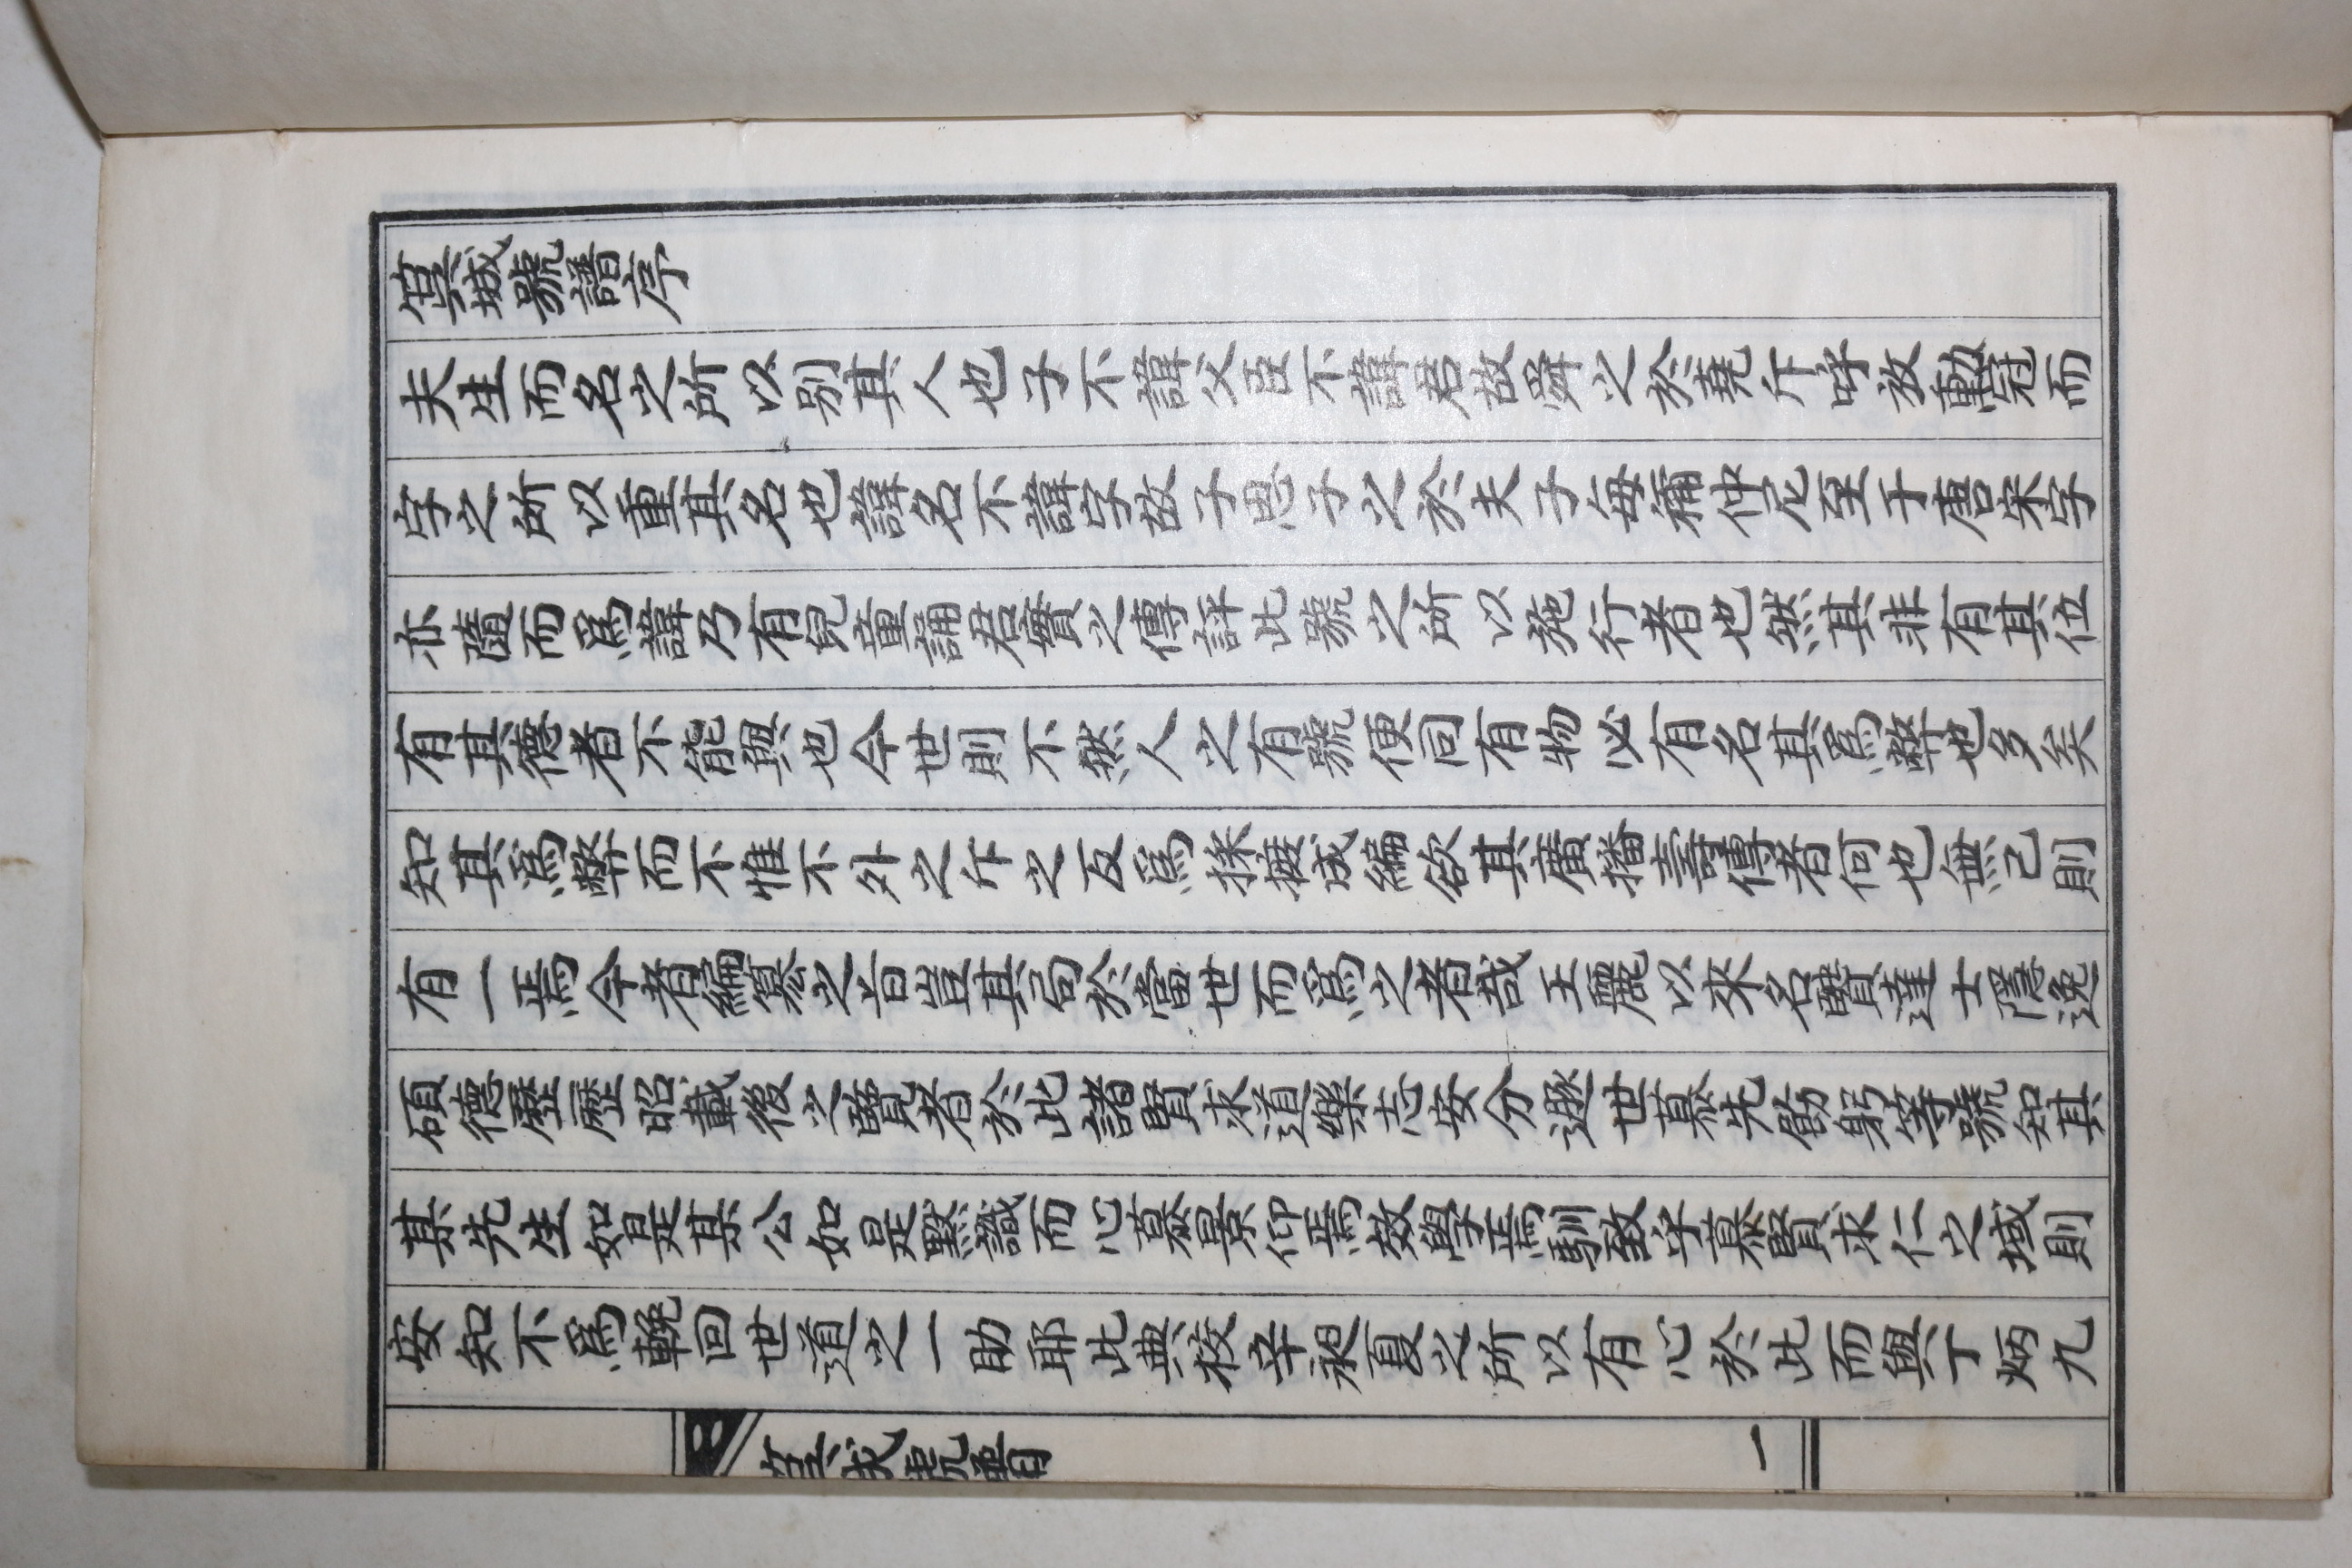 箕城號譜序
夫生而名之所以别其人也子不諱父臣不諱君故舜之於堯斥呼放勳冠而
字之所以重其名也諱名不諱字故子思子之於夫子每稱仲尼至于唐宋字
亦隨而爲諱乃有兒童誦君實之傳評此號之所以施行者也然其非有其位
有其德者不能與也今世則不然人之有號便同有物必有名其爲弊也多矣
知其爲弊而不惟不外之斥之反爲採摭成編欲其廣播壽傳者何也無已則
有一焉今者編纂之旨豈其局於當世而爲之者哉王麗以來名賢達士隱逸
碩德歷歷昭載後之覽者於此諸賢求道樂志安分遯世慕先飭躬等號知其
某先生如是某公如是默識而心慕景仰焉效學焉馴致乎慕賢求仁之域則
安知不爲輓回世道之一助耶此典校辛昶夏之所以有心於此而與丁炳九
箕城號譜
一